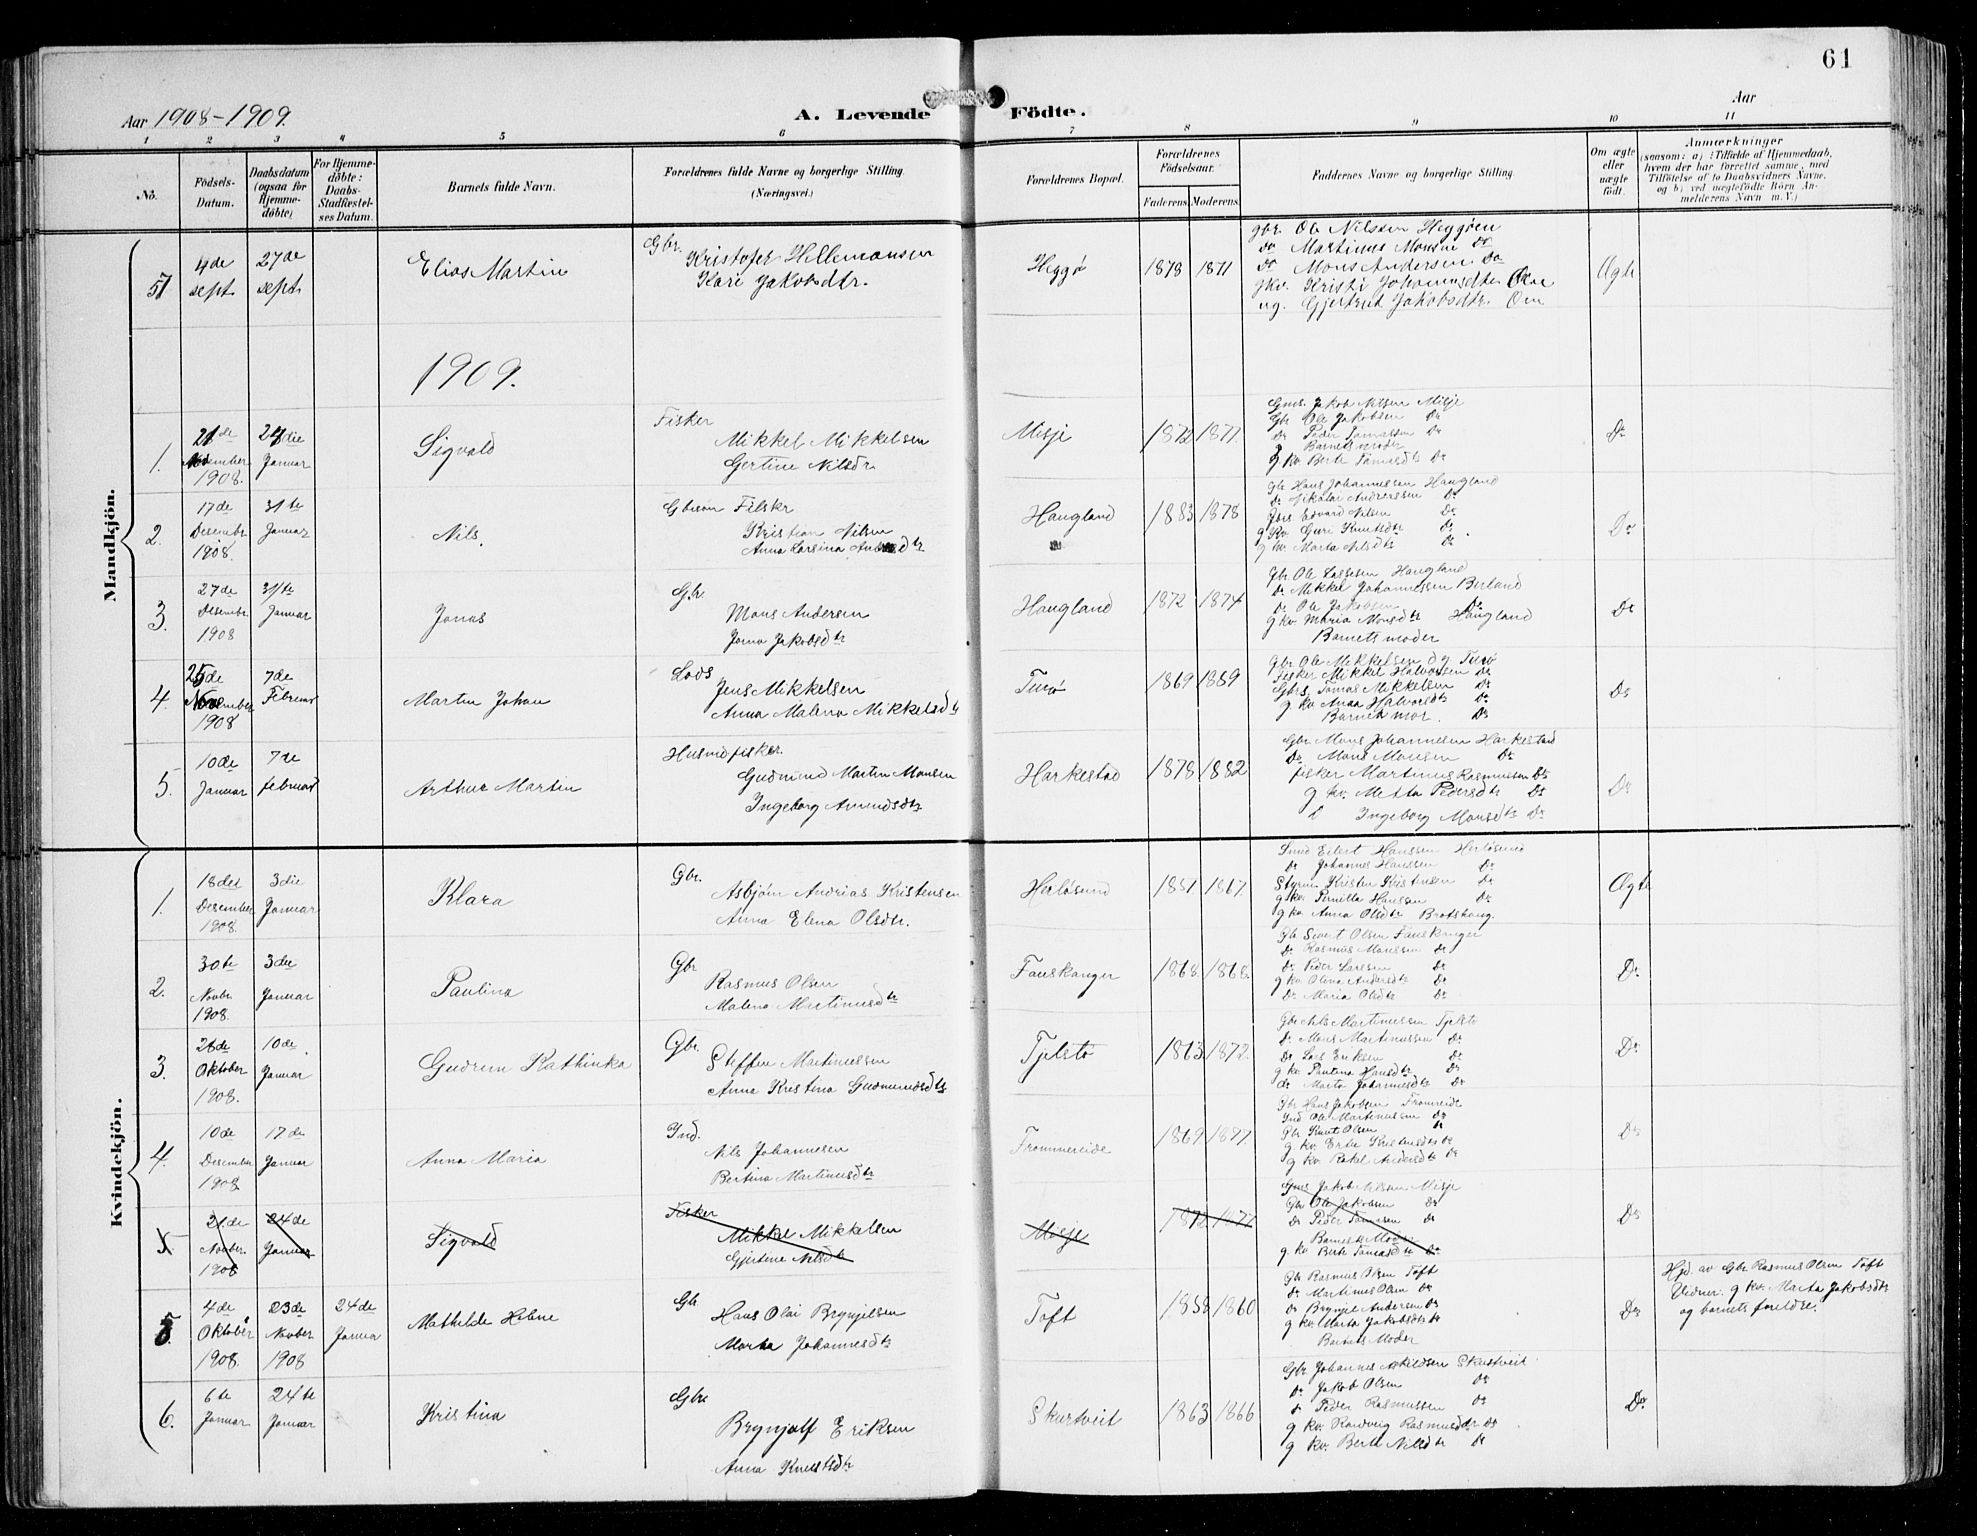 61
Aar 1908-1909.
A. Levende Födte.
Aar
1 2 3 4 5 6 7 8 9 10 11
No.
Födsels-Datum.
Daabsdatum (ogsaa for Hjemmedöbte)
For Hjemmedöbte: Daabs-Stadfæstelses Datum.
Barnets fulde Navn.
Forældrenes fulde Navne og borgerlige Stilling
(Næringsvei.)
Forældrenes Bopæl.
Forældrenes Födselsaar.
Faderens. Moderens.
Faddernes Navne og borgerlige Stilling.
Om ægte eller uægte födt.
Anmærkninger
(saasom: a) i Tilfælde af Hjemmedaab, hvem der har forrettet samme, med Tilföielse af to Daabsvidners Navne, og b) ved uægtefödte Börn Anmelderens Navn m. V.)
Mandkjön.
51 4de sept. 27de sept. Elias Martin
Gbr. Kristofer Hellemansen
Kari Jakobsdtr.
Heggø 1878 1871
gbr. Ole Nilssen Heggøen
do Martinus Monsen do
do Mons Andersen do
gkv. Kristi Johannesdtr
ug. Gjertrud Jakobsdtr. Om
Ægte
1909.
1. 21de November 1908. 24die Januar Sigvald
Fisker
Mikkel Mikkelsen
Gertine Nilsdr
Misje 1872 1877.
Gms. Jakob Nilsen Misje
Gbr Ole Jakobsen Do
Do Peder Tomassen Do
Barnets moder
g kv Berte Tomasdtr Do
Do
2. 17de Desember 1908. 31te Januar Nils.
Gbrsøn Filskr
Kristian Nilsen
Haugland 1883 1878
Gbr Hans Johannessen Haugland
Do Nikolai Anderssen Do
Gbrs Edvard Nilsen Do
g Kv Guri Knutsdtr do
g kv Marta Nilsdtr do
Do
3. 27de Desembr 1908 31te Januar Jonas
Gbr.
Mons Andersen
Jakobsdtr
Haugland 1872 1874
Gbr Ole Lassesen Haugland
Do Mikkel Johannessen Berland
Do Ole Jakobsen Do
g kv. Maria Monsdtr Haugland
Barnets moder
Do
4. 25de November 1908 7de Februar Martin Johan
Lods
Jens Mikkelsen
Anna Malena Mikkelsdtr
Turø 1869 1889
Gbr Ole Mikkelsen Turø
Fisker Mikkel Halvorsen Do
Gbrs Tomas Mikkelsen Do
g kv Anna Halvorsdtr Do
Barnets mor. Do
Do
5. 10de Januar 7de februar Arthur Martin
Husmd fisker.
Gudmund Martin Monsen
Ingeborg Amundsdtr
Harkestad 1878 1882
Gbr Mons Johannesen Harkestad
Do Mons Monsen Do
fisker Martinus Rasmussen Do
g kv. Metta Pedersdtr Do
Ingeborg Monsdtr Do
Do
Kvindekjön.
1. 18det Desember 1908. 3die Januar Klara
Gbr.
Asbjørn Andrias Kristensen
Anna Elena Olsdtr.
Herløsund 1851 1867.
Eilert Hanssen Herløsund
Do Johannes Hanssen Do
Styrm Kristen Kristensen Do
g kv. Pernilla Hanssen Do
g kv Anna Olsdtr Brotshaug.
Ægte
2. 30te Novbr. 1908. 3die Januar Paulina
Gbr
Rasmus Olsen
Malena Martinusdtr
Fauskanger 1868. 1868.
Gbr Sivert Olsen Fauskanger
Do Rasmus Monssen Do
Do Peder Larssen Do
g kv Olina Andersdtr Do
Do Maria Olsdtr Do
Do
3. 26de Oktober 1908. 10de Januar Gudrun Kathinka
Gbr.
Steffen Martinussen
Anna Kristina Gudmundsdtr
Tjelstø 1863 1872.
Gbr Nils Martinussen Tjelstø
Do Mons Martinussen Do
Do Lars Eriksen Do
g kv Paulina Hansdtr Do
do Marta Johannesdtr Do
Do
4. 10de Desember 1908 17de Januar Anna Maria
Ind.
Nils Johannesen
Bertina Martinusdtr
Frommereide 1869 1877.
Gbr Hans Jakobsen Fromreide
Ind Ole Martinussen Do
Gbr Knut Olsen do
g kv. Erta Kristensdtr do
g kv. Rakel Andersdtr Do
Do
5 21de Novber 1908 24de Januar Sigvald
Fisker
Mikkel Mikkelsen
Gjertine Nilsdtr
Misje 1872 1877
Gms Jakob Nilsen Misje
Gbr Ole Jakobsen Do
Do Peder Tomassen Do
Barnets Moder
g kv Berte Tomasdtr Do
Do
5. 4de Oktober 1908. 23de Novber 1908 24de Januar Mathilde Helene
Gbr
Hans Olai Brynjelsen
Marta Johannesdtr
Toft 1858 1860
Gbr Rasmus Olsen Toft
Do Martinus Olsen Do
Do Brynjel Andersen Do
g kv. Marta Jakobsdtr Do
Barnets Moder
Do
Hjd. av Gbr Rasmus Olsen Toft
Vidner: g kv. Marta Jakobsdtr
og barnets foreldre.
6. 6te Januar 24te Januar Kristina
Gbr.
Brynjolf Eriksen
Anna Knutsdtr
Skurtveit 1863 1866
Gbr Johannes Skurtveit
Do Jakob Olsen Do
Do Peder Rasmussen Do
g kv. Randveig Rasmusdtr do
g kv. Berte Nilsdtr do
Do